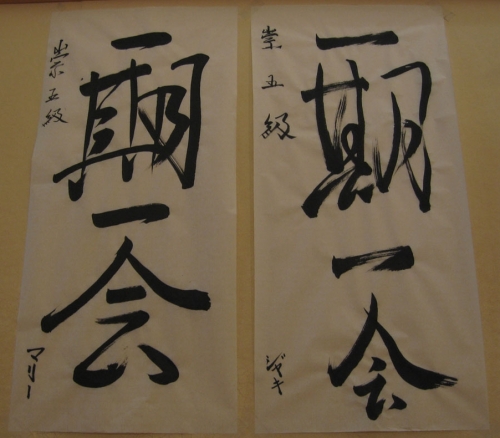 一期一会
崇五級 ジャキ
一期一会
崇五級 マリー